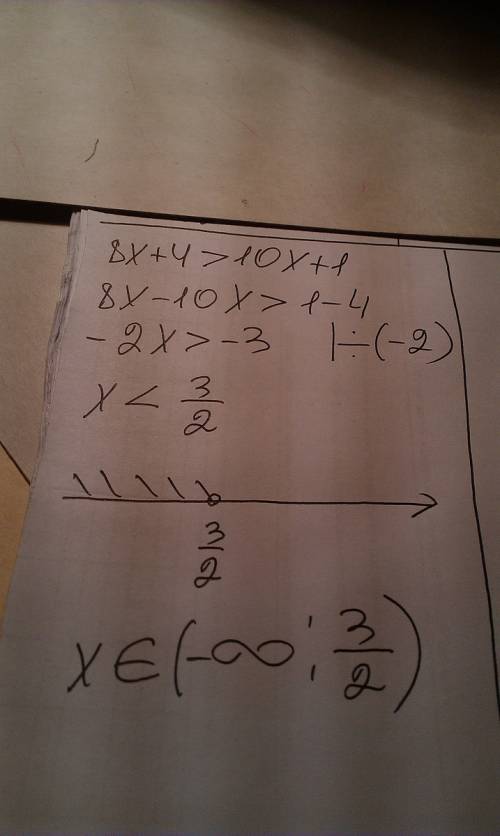 8x+4>10x+1
8x-10x>1-4
-2x>-3 |÷(-2)
x<3/2
3/2
x∈(-∞;3/2)